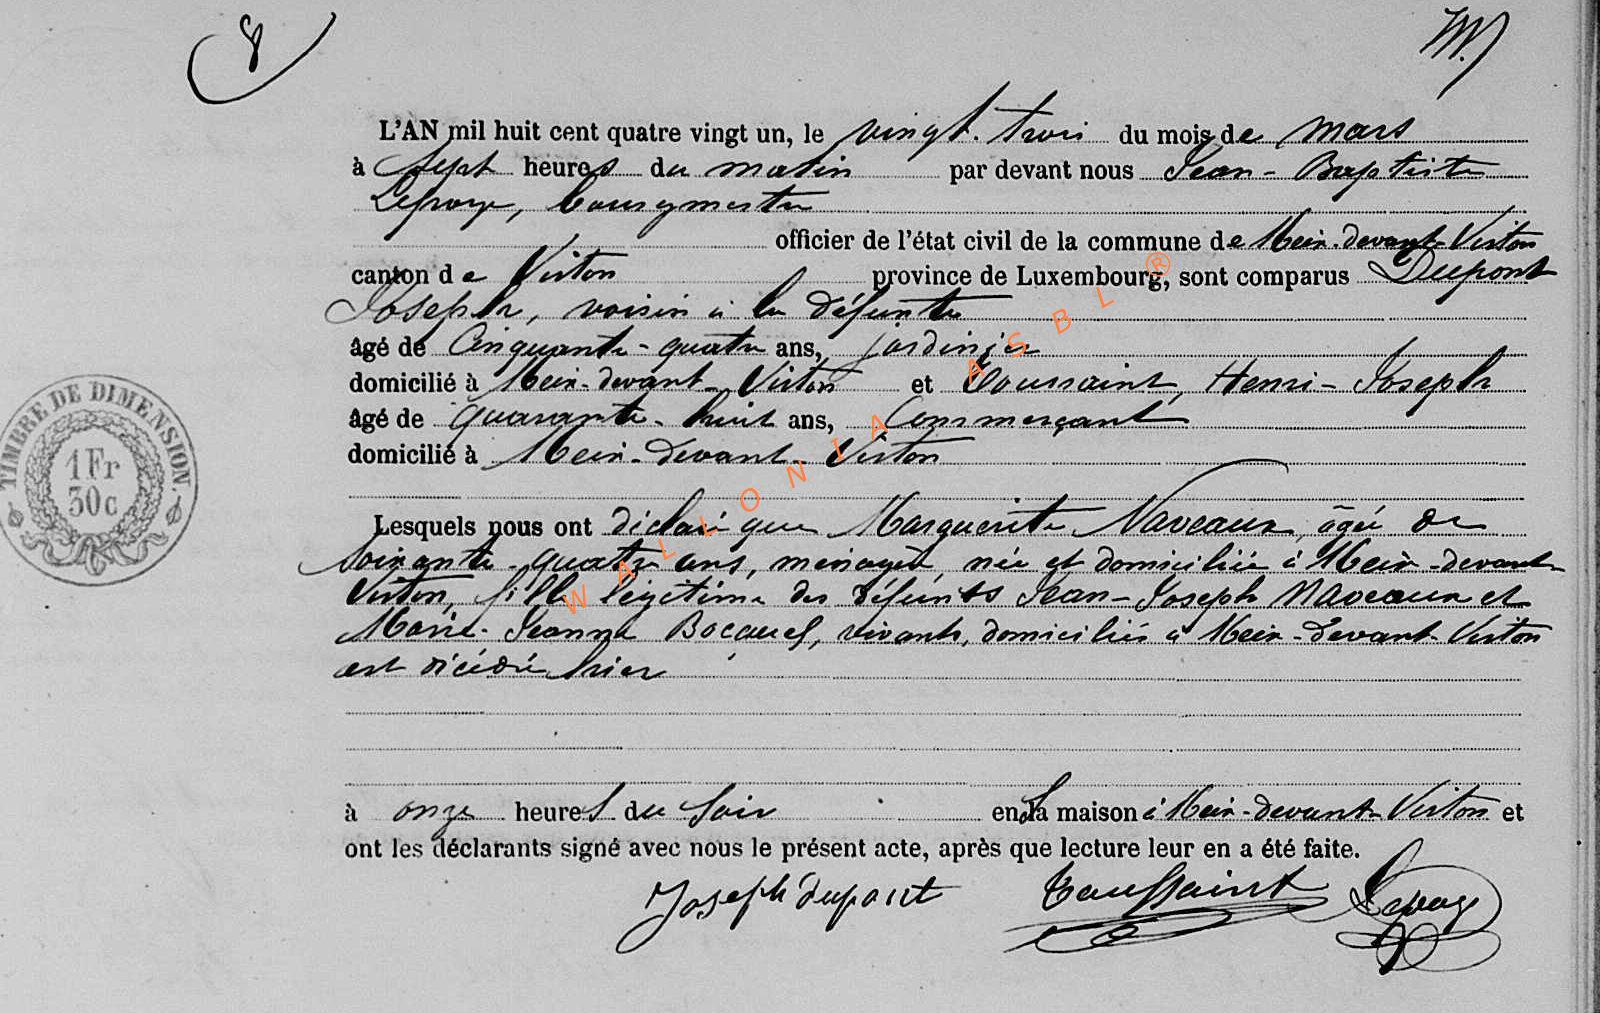 8
L'AN mil huit cent quatre vingt un, le vingt-trois du mois de mars
à sept heures du matin par devant nous Jean-Baptiste
Lepage, bourgmestre
officier de l'état civil de la commune de Meix-devant-Virton
canton de Virton province de Luxembourg, sont comparus Dupont
Joseph, voisin à la défunte
âgé de Cinquante-quatre ans, jardinier
domicilié à Meix-devant-Virton et Toussaint, Henri-Joseph
âgé de quarante-huit ans, Commerçant
domicilié à Meix-devant-Virton
Lesquels nous ont déclaré que Marguerite Naveaux, âgée de
soixante-quatre ans, ménagère, née et domiciliée à Meix-devant-
Virton, fille légitime des défunts Jean-Joseph Naveaux et
Marie-Jeanne vivants, domiciliés à Meix-devant-Virton
est décédée hier
à onze heures du soir en sa maison à Meix-devant-Virton et
ont les déclarants signé avec nous le présent acte, après que lecture leur en a été faite.
Joseph dupont Toussaint Lepage
TIMBRE DE DIMENSION.
1Fr
30c
WALLONIA ASBL ®